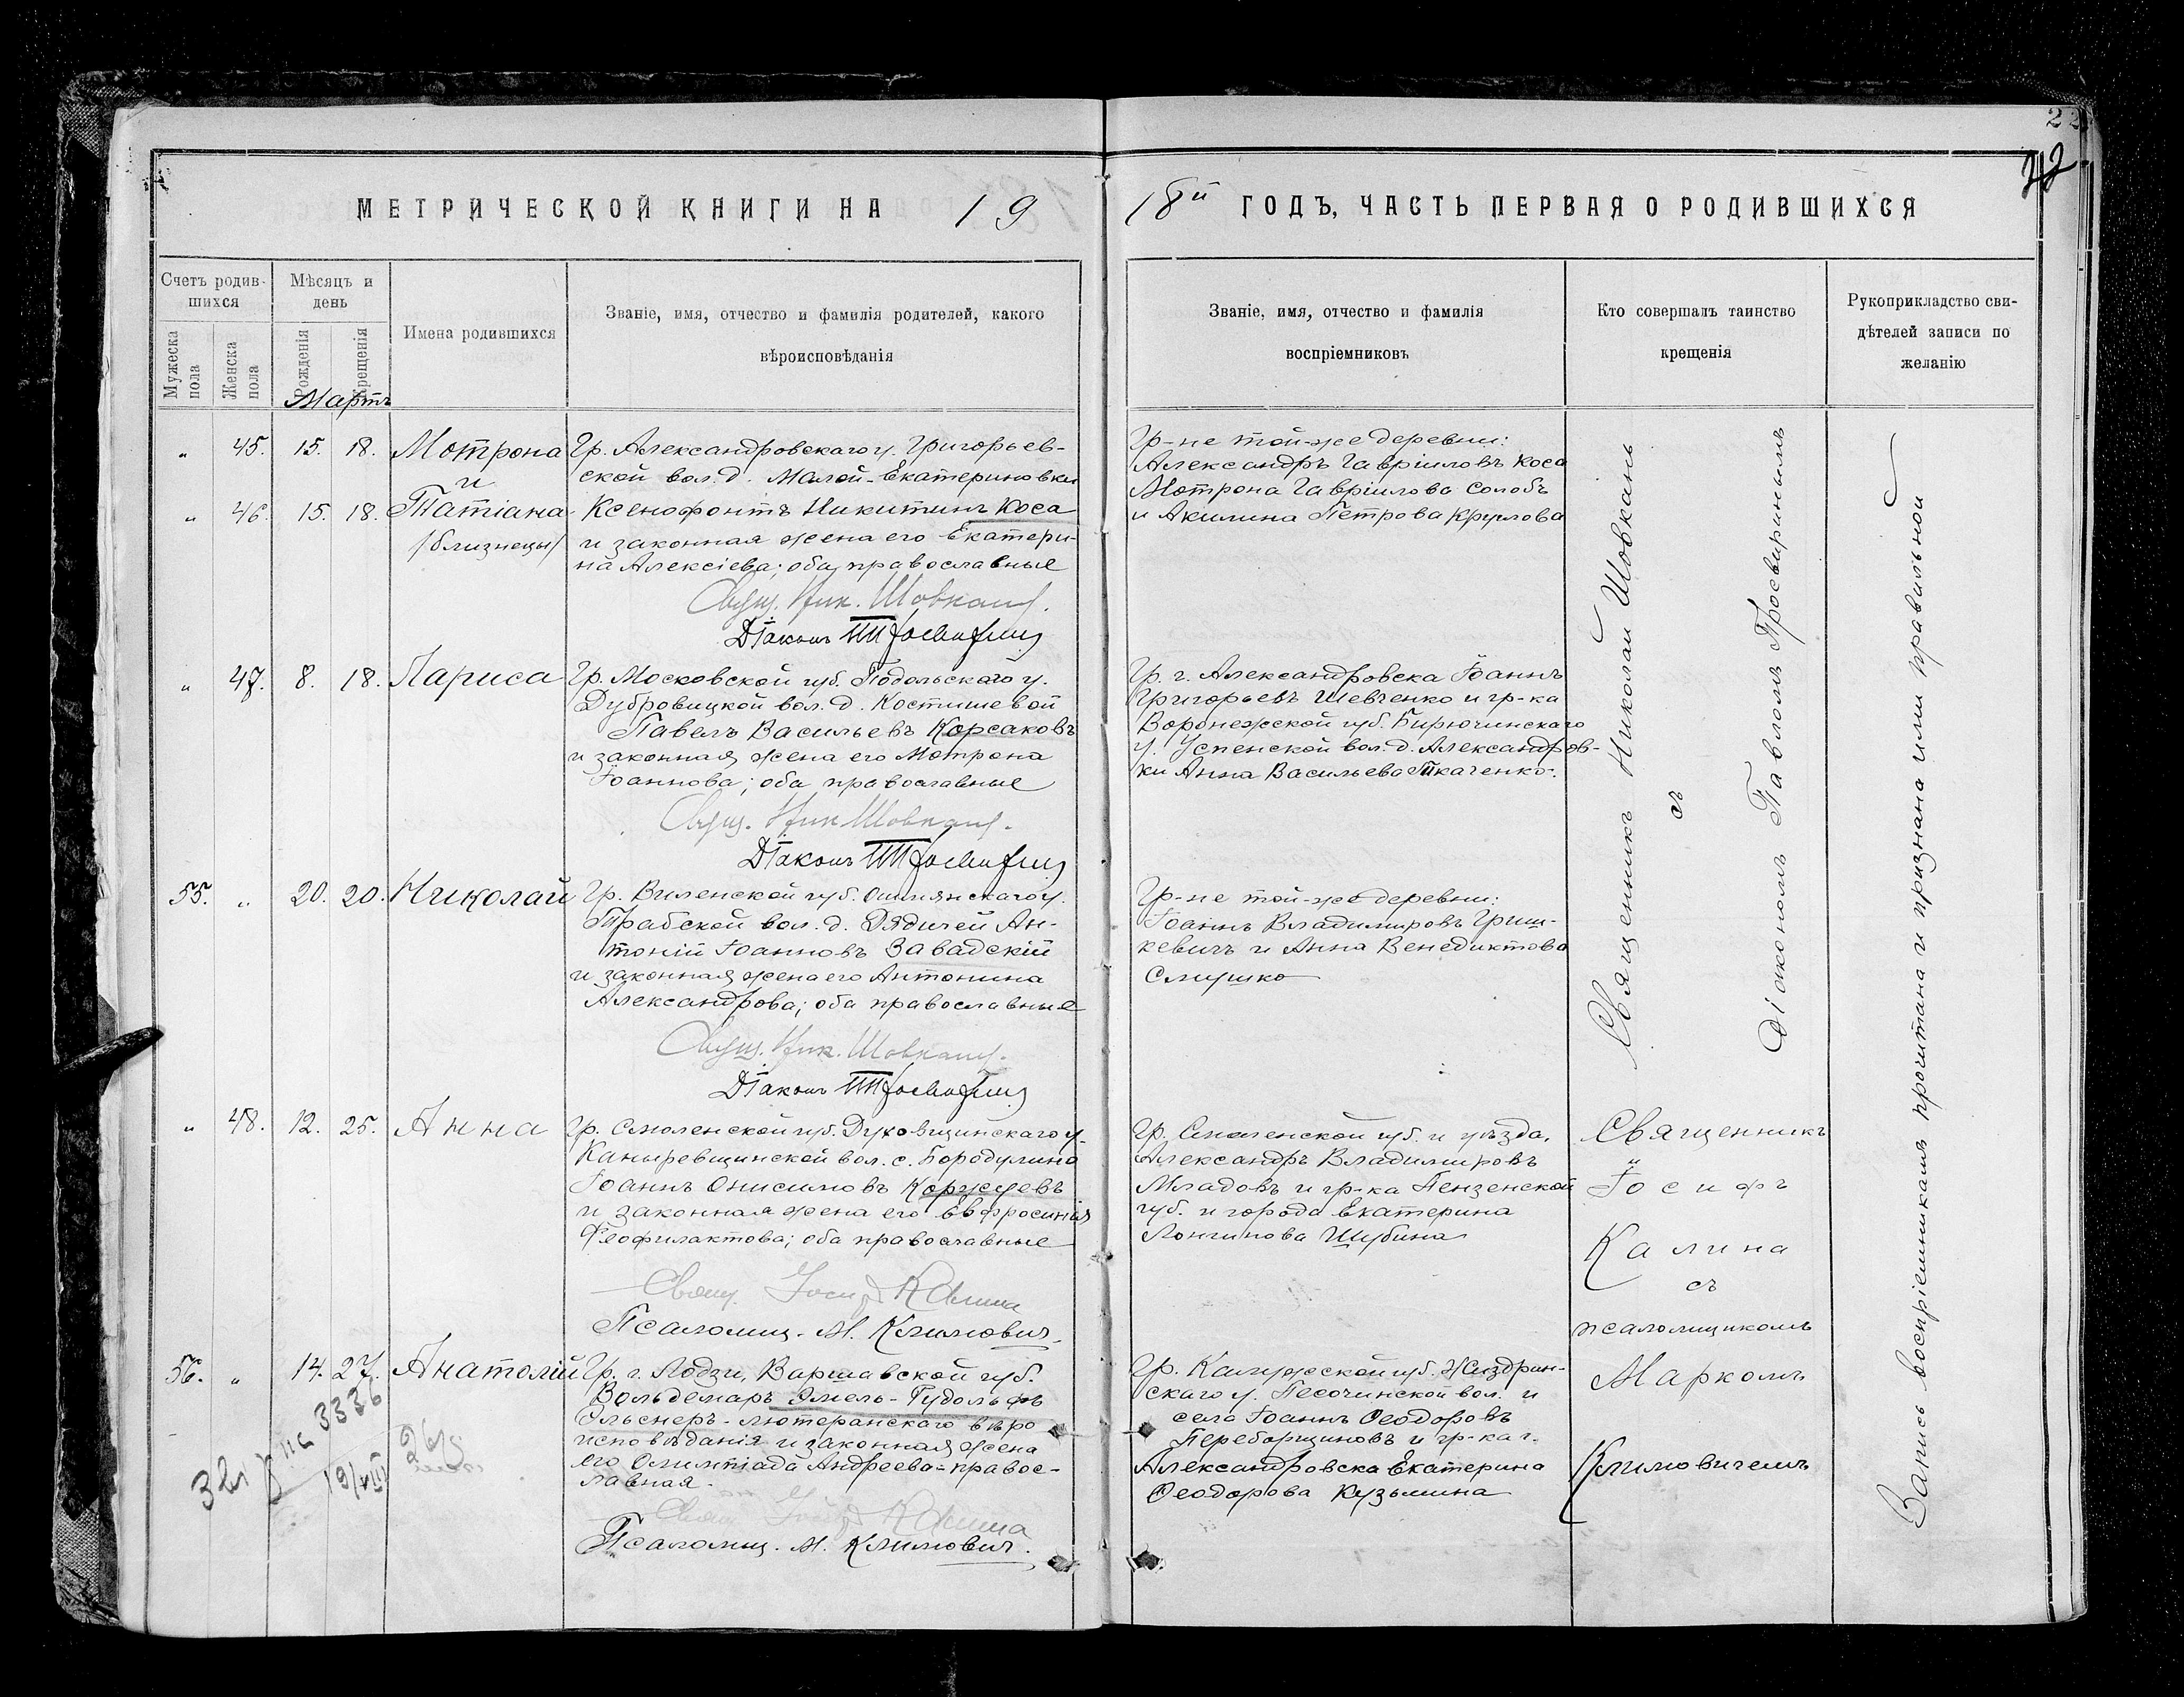 22
22
МЕТРИЧЕСКОЙ КНИГИ НА 19
18й ГОДЪ, ЧАСТЬ ПЕРВАЯ О РОДИВШИХСЯ
Счетъ родив-
шихся
Мужеска
пола
Женска
пола
Мѣсяцъ и
день
Рожденія
Крещенія
Мартъ
Имена родившихся
Званіе, имя, отчество и фамилія родителей, какого
вѣроисповѣданія
Званіе, имя, отчество и фамилія
воспріемниковъ
Кто совершалъ таинство
крещенія
Рукоприкладство сви-
дѣтелей записи по
желанію
" 45. 15. 18. Мотрона
и
" 46. 15. 18. Татіана
/близнецы/
Гр. Александровскаго у. Григорьев-
ской вол. д. Малой-Екатериновки
Ксенофонтъ Никитинъ Коса
и законная жена его Екатери-
на Алексіева; оба православные
Свящ. Ник. Шовкань.
Діаконъ
Гр-не той-же деревни:
Александръ Гавріиловъ Коса
Мотрона Гавріилова Солобъ
и Акилина Петрова Круглова
" 47. 8. 18. Лариса
Гр. Московской губ. Подольскаго у.
Дубровицкой вол. д. Костишевой
Павелъ Васильевъ Корсаковъ
и законная жена его Мотрона
Іоаннова; оба православные
Свящ. Ник Шовкань.
Діаконъ
Гр. г. Александровска Іоаннъ
Григорьевъ Шевченко и гр-ка
Воронежской губ. Бирючинскаго
у. Успенской вол. д. Александров-
ки Анна Васильева Ткаченко.
55. " 20. 20. Николай
Гр. Виленской губ. Ошмянскаго у.
Трабской вол. д. Дядичей Ан-
тоній Іоанновъ Завадскій
и законная жена его Антонина
Александрова; оба православные
Свящ. Ник. Шовкань.
Діаконъ
Гр-не той-же деревни:
Іоаннъ Владимировъ Гриш-
кевичъ и Анна Венедиктова
Слушко
Священникъ Николай Шовкань
съ
діакономъ Павломъ Просвиринымъ
" 48. 12. 25. Анна
Гр. Смоленской губ. Духовщинскаго у.
Каныревщинской вол. с. Бородулина
Іоаннъ Онисимовъ Коржуевъ
и законная жена его Евфросинія
Феофилактова; оба православные
Свящ. Іосиф Калина
Псаломщ. М. Климович.
Гр. Смоленской губ. и уѣзда,
Александръ Владимировъ
Младовъ и гр-ка Пензенской
губ. и города Екатерина
Лонгинова Шубина
Священникъ
Іосифъ
Калина
съ
псаломщикомъ
Маркомъ
Климовичемъ
56. " 14. 27. Анатолій
Гр. г. Лодзи, Варшавской губ.
Вольдемаръ Эмель-Рудольфъ
Ольснеръ-лютеранскаго вѣро
исповѣданія и законная жена
его Олимпіада Андреева-правос-
лавная.
Свящ Іосиф Калина
Псаломщ. М. Климович.
Гр. Калужской губ. Жиздрин-
скаго у. Песочинской вол. и
села Іоаннъ Ѳеодоровъ
Переборщиновъ и гр-ка г.
Александровска Екатерина
Ѳеодорова Кузьмина
на 3336
19/VIII
Запись воспріемниками прочитана и признана ими правильной